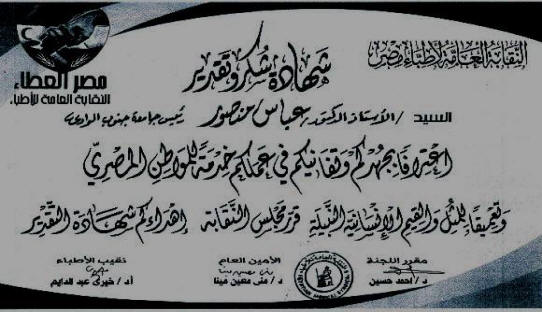 النقابة العامة لأطباء مصر
مصر العطاء
النقابة العامة للأطباء
شهادة شكر وتقدير
السيد / الأستاذ الدكتور / عباس منصور رئيس جامعة جنوب الوادى
إعترافاً بجهدكم وتفانيكم في عملكم خدمة للمواطن المصري
وتعميقاً للمثل والقيم الإنسانية النبيلة قرر مجلس النقابة إهداءكم شهادة التقدير
مقرر اللجنة
د / أحمد حسين
الأمين العام
د / منى معين مينا
نقيب الأطباء
أ.د / خيرى عبد الدايم